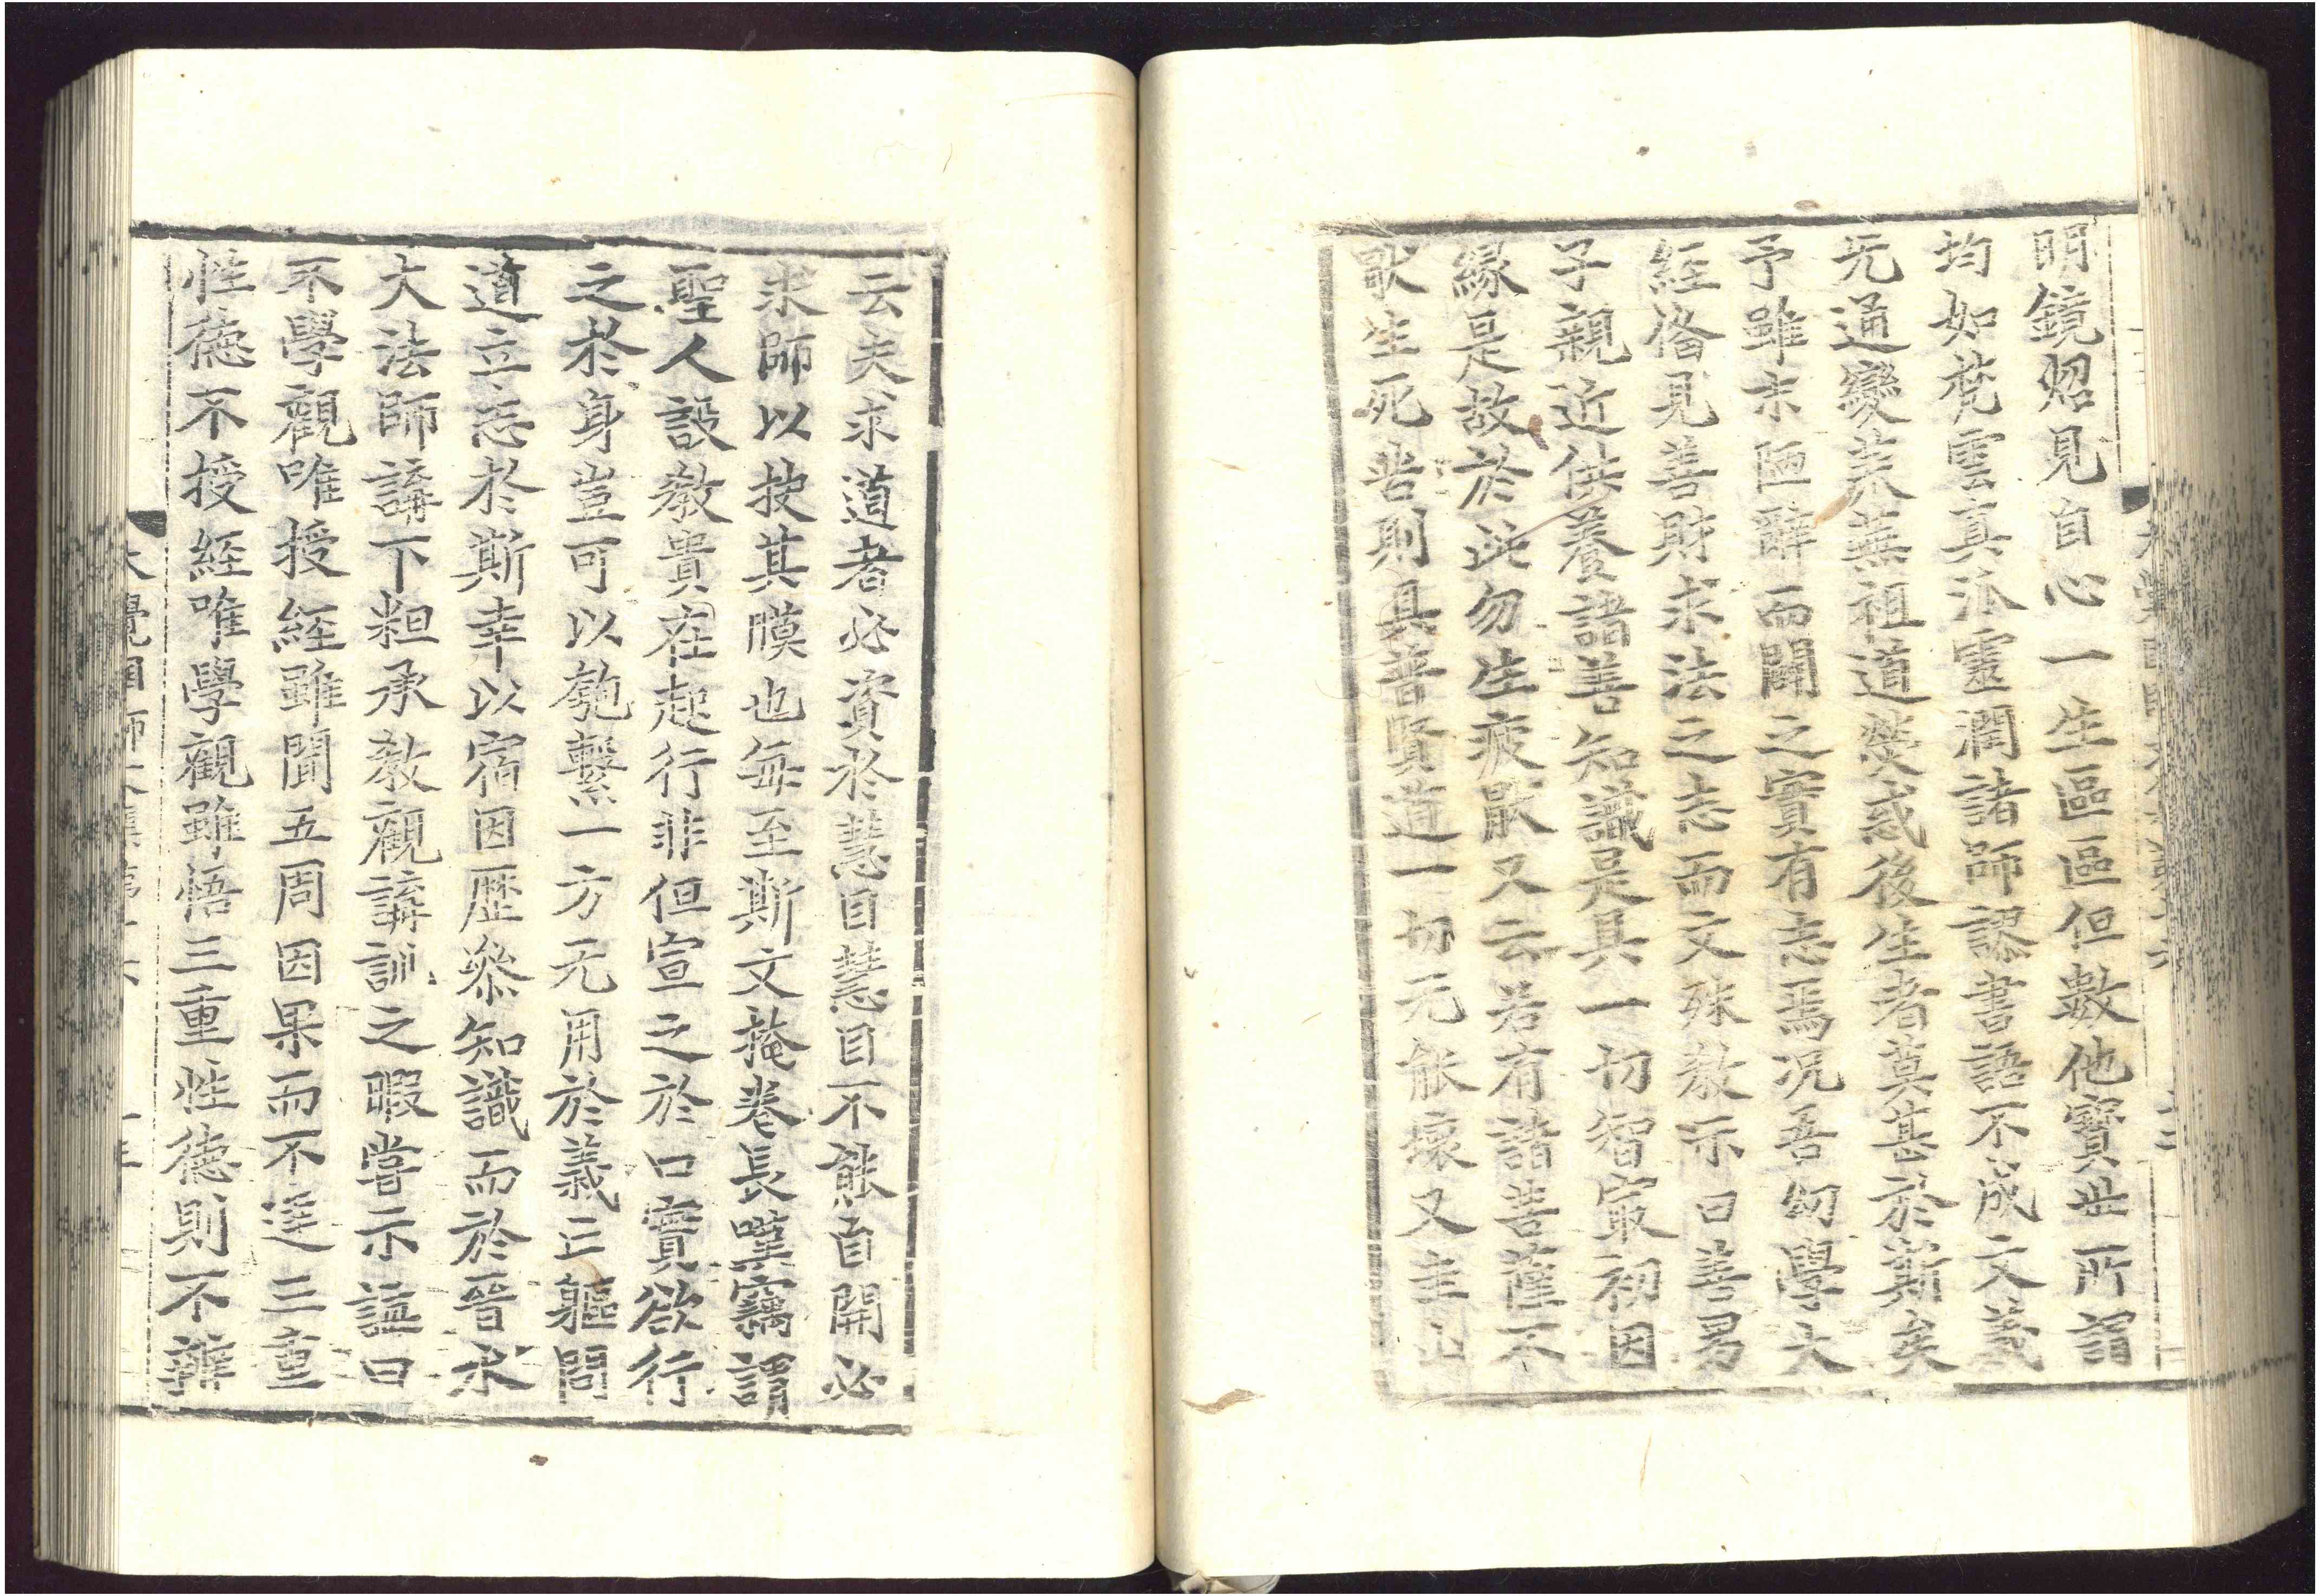 明鏡炤見自心一生區區但數他寶此所謂
均如梵雲眞派靈潤諸師謬書語不成文義
无通變荒蕪祖道熒惑後生者莫甚於斯矣
予雖未陋辭而闢之實有志焉況吾幼學大
經俻見善財求法之志而文殊教示曰善男
子親近供養諸善知識是具一切智冣初因
緣是故於此勿生疲猒又云若有諸菩薩不
猒生死苦則具普賢道一切元能壞又
云夫求道者必資於慧目慧目不能自開必
求師以抉其膜也每至斯文掩卷長嘆竊謂
聖人設教貴在起行非但宣之於口實欲行
之於身豈可以匏繫一方无用於義亡軀問
道立志於斯幸以宿因歷叅知識而於晉水
大法師講下粗承教觀講訓之暇嘗示誨曰
不學觀唯授經雖聞五周因果而不達三重
性德不授經唯學觀雖悟三重性德則不辯
大覺國師文集第十六